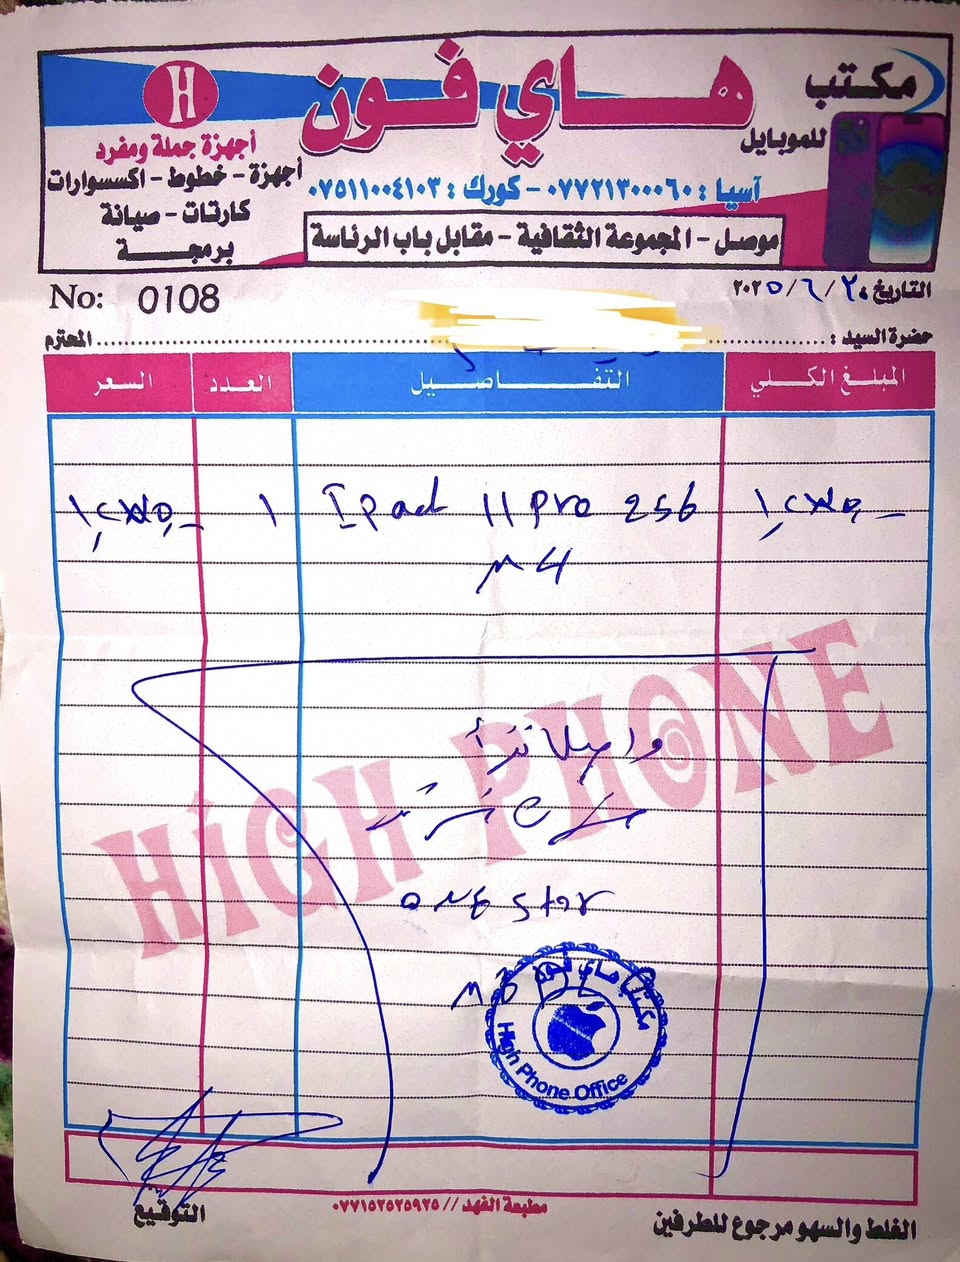 مكتب
هاي فون
للموبايل
H
أجهزة جملة ومفرد
أجهزة - خطوط - اكسسوارات
كارتات - صيانة
برمجة
آسيا : ٠٧٧٢١٣٠٠٠٦٠ - كورك : ٠٧٥١١٠٠٤١٠٣
موصل - المجموعة الثقافية - مقابل باب الرئاسة
No: 0108
التاريخ ٢٠ / ٦ / ٢٠٢٥
حضرة السيد : المحترم
المبلغ الكلي التفاصيل العدد السعر
Ipad 11 pro 256 ١
M4
HIGH PHONE
واصلا نقداً
one star
مكتب هاي فون
High Phone Office
التوقيع
مطبعة الفهد // ٠٧٧١٥٢٥٢٥٩٢٥
الغلط والسهو مرجوع للطرفين